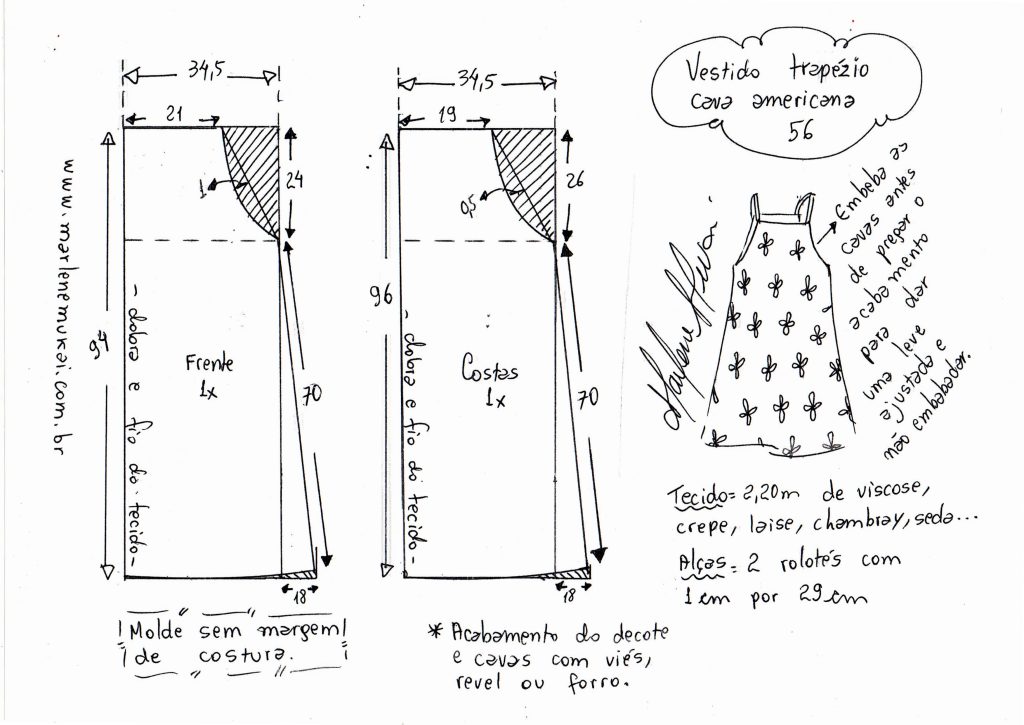 34,5
21
24
1
94
www.marlenemukai.com.br
- dobra e fio do tecido -
Frente
1x
70
18
34,5
19
26
0,5
96
- dobra e fio do tecido -
Costas
1x
70
18
Vestido trapézio
cava americana
56
Embeba as
cavas antes
de pregar o
acabamento
para dar
uma leve
ajustada e
não embabadar.
Marlene Mukai
Tecido = 2,20m de viscose,
crepe, laise, chambray, seda...
Alças = 2 rolotês com
1cm por 29cm
Molde sem margem
de costura.
* Acabamento do decote
e cavas com viés,
revel ou forro.